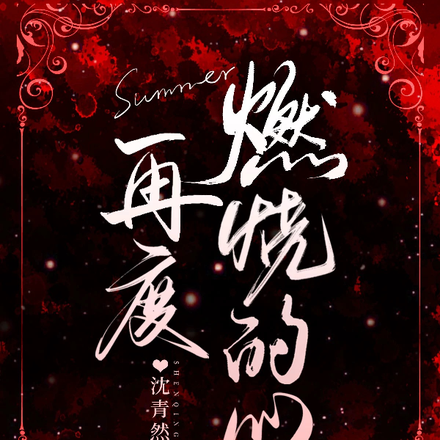 Summer
燃烧的
再度
沈青然
SHENQING